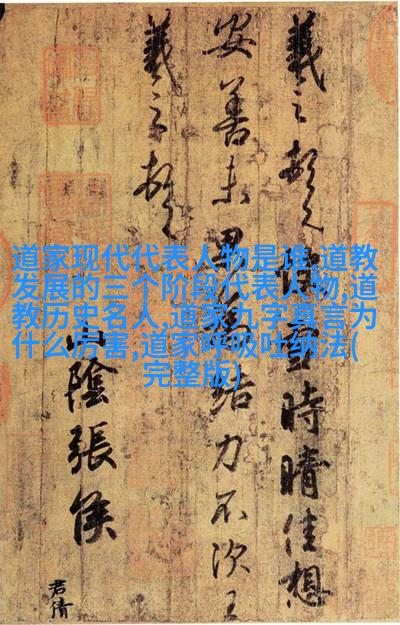 道家现代代表人物是谁,道教
发展的三个阶段代表人物,道
教历史名人,道家九字真言为
什么厉害,道家呼吸吐纳法(
完整版)
羲之頓首快雪時晴佳想
安善未果為結力不次王
羲之頓首
山陰張侯
君倩